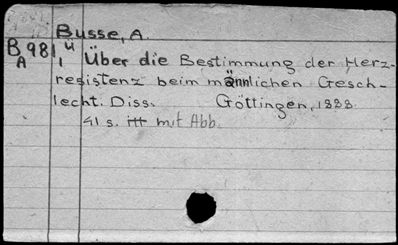 Busse, A
B 981 ü
A 1 Über die Bestimmung der Herz-
resistenz beim männlichen Gesch-
lecht. Diss. Göttingen, 1888.
41 s. mit Abb.